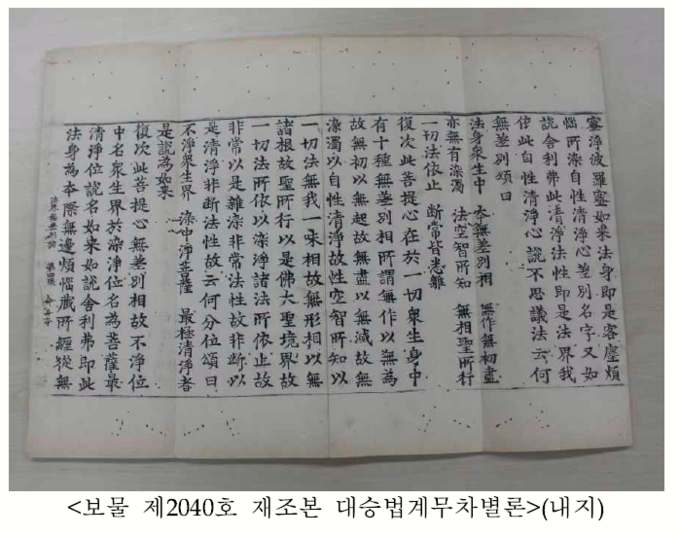 蜜淨波羅蜜如來法身即是客塵煩
惱所染自性清淨心差別名字又如
說舍利弗此清淨法性即是法界我
依此自性清淨心說不思議法云何
無差別頌曰
法身眾生中 本無差別相 無作無初盡
亦無有染濁 法空智所知 無相聖所行
一切法依止 斷常皆悉離
復次此菩提心在於一切眾生身中
有十種無差別相所謂無作以無為
故無初以無起故無盡以無滅故無
染濁以自性清淨故性空智所知以
一切法無我一味相故無形相以無
諸根故聖所行以是佛大聖境界故
一切法所依以染淨諸法所依止故
非常以是雜染非常法性故非斷以
是清淨非斷法性故云何分位頌曰
不淨眾生界 染中淨菩薩 最極清淨者
是說為如來
復次此菩提心無差別相故不淨位
中名眾生界於染淨位名為菩薩最
清淨位說名如來如說舍利弗即此
法身為本際無邊煩惱藏所纏從無
<보물 제2040호 재조본 대승법계무차별론>(내지)